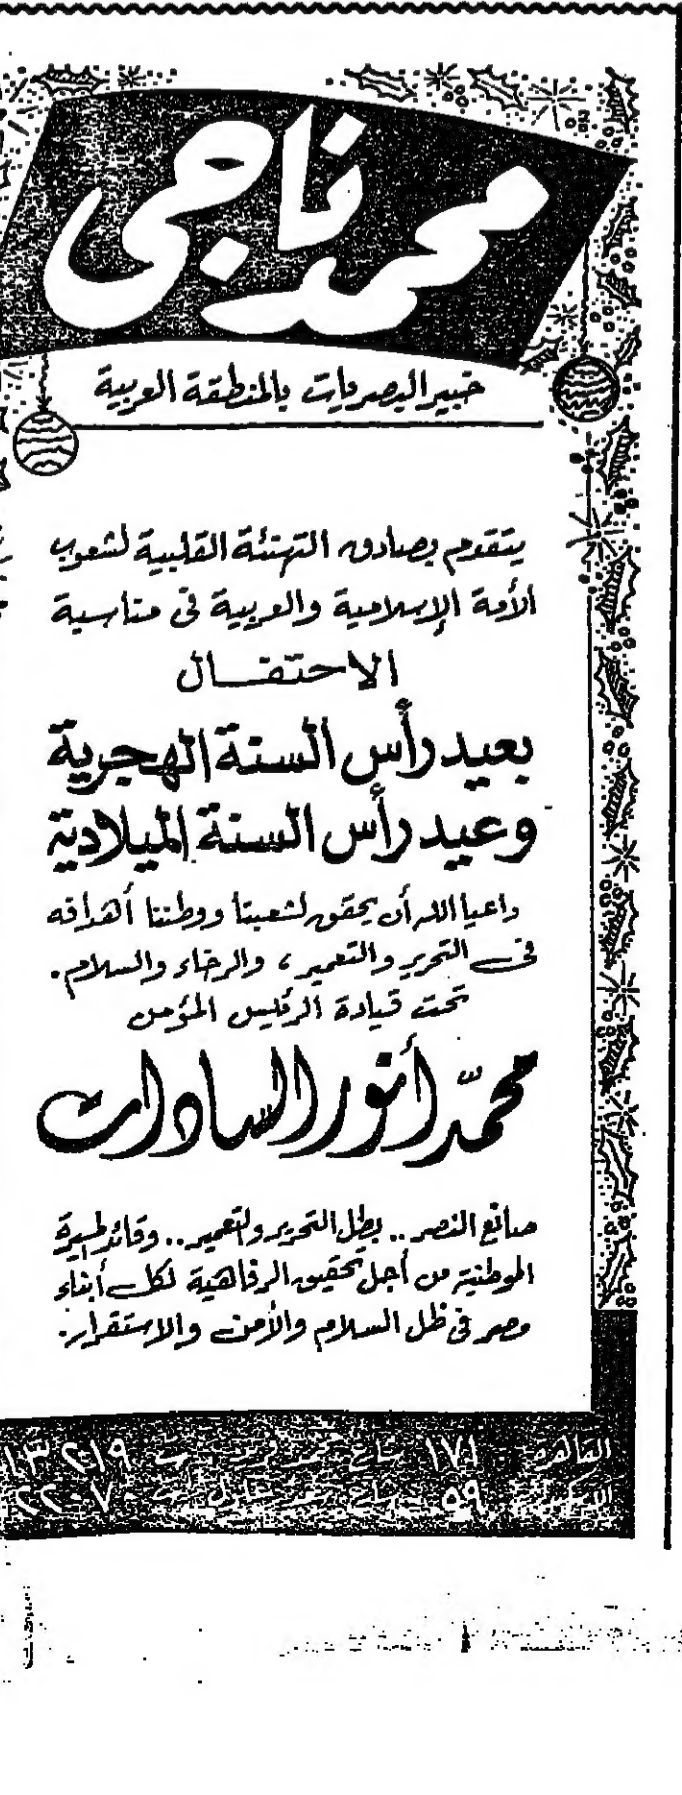 محمد ناجى
خبير البصريات بالمنطقة العربية
يتقدم بصادق التهنئة القلبية لشعوب
الأمة الإسلامية والعربية فى مناسبة
الاحتفــال
بعيد رأس السنة الهجرية
وعيد رأس السنة الميلادية
داعيا الله أن يحقق لشعبنا ووطننا أهدافه
فى التحرير والتعمير، والرخاء والسلام.
تحت قيادة الرئيس المؤمن
محمّد أنور السادات
صانع النصر .. بطل التحرير والتعمير .. وقائد المسيرة
الوطنية من أجل تحقيق الرفاهية لكل أبناء
مصر فى ظل السلام والأمن والاستقرار.
القاهرة ١٧١ شارع محمد فريد ت
٥٩ شارع سعد زغلول ت